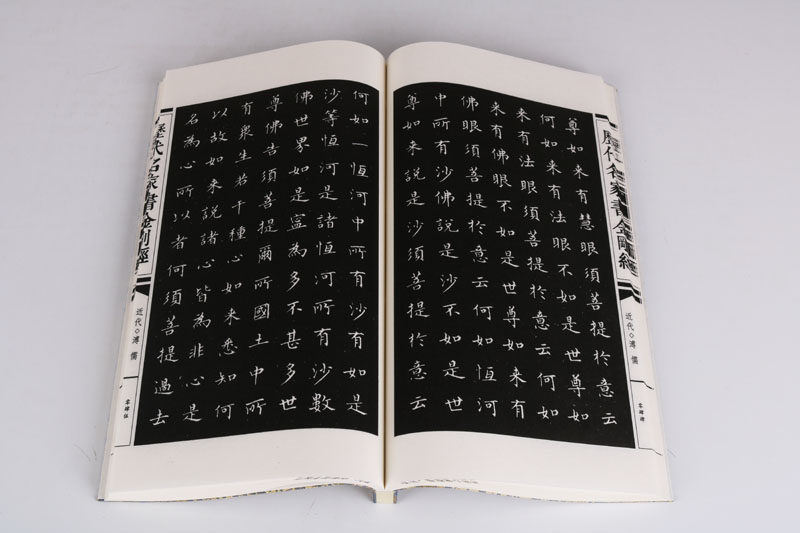 歷代名家書金剛經
近代◇溥儒
尊如来有慧眼須菩提於意云
何如来有法眼不如是世尊如
来有法眼須菩提於意云何如
来有佛眼不如是世尊如来有
佛眼須菩提於意云何如恆河
中所有沙佛說是沙不如是世
尊如来說是沙須菩提於意云
何如一恆河中所有沙有如是
沙等恆河是諸恆河所有沙數
佛世界如是寧為多不甚多世
尊佛告須菩提爾所國土中所
有衆生若干種心如来悉知何
以故如来說諸心皆為非心是
名為心所以者何須菩提過去
歷代名家書金剛經
近代◇溥儒